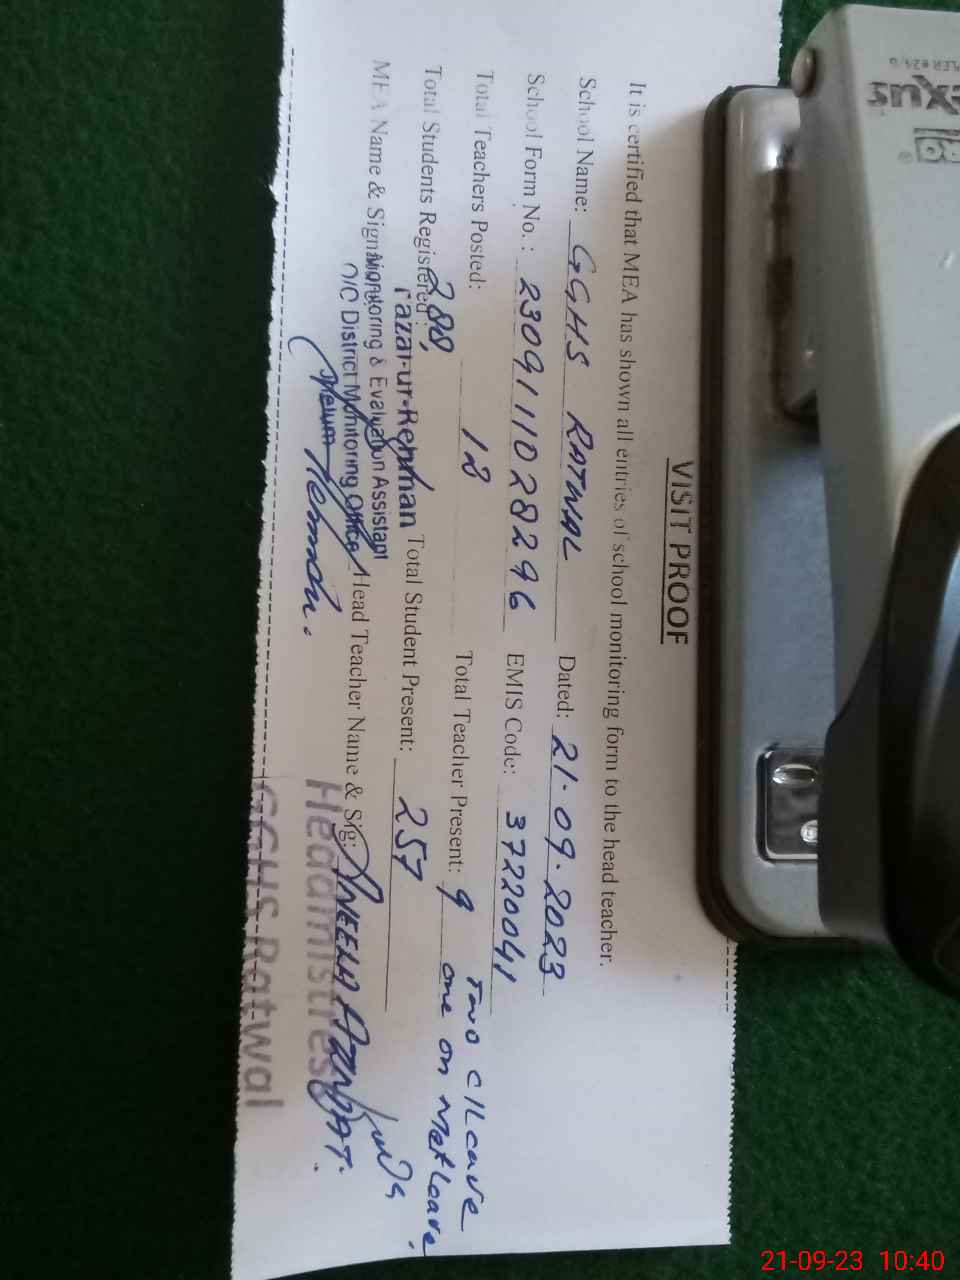 VISIT PROOF
It is certified that MEA has shown all entries of school monitoring form to the head teacher.
School Name: GGHS RATWAL Dated: 21.09.2023
School Form No. : 2309111028296 EMIS Code: 37220041
Total Teachers Posted: 12 Total Teacher Present: 9 Two C/Leave
one on Mat Leave.
Total Students Registered: 288, Total Student Present: 257
MEA Name & Sign: Head Teacher Name & Sig:
azal-ur-Rehman
Monitoring & Evaluation Assistant
O/C District Monitoring Office
Headmistress
GGHS Ratwal
exus
®
21-09-23 10:40